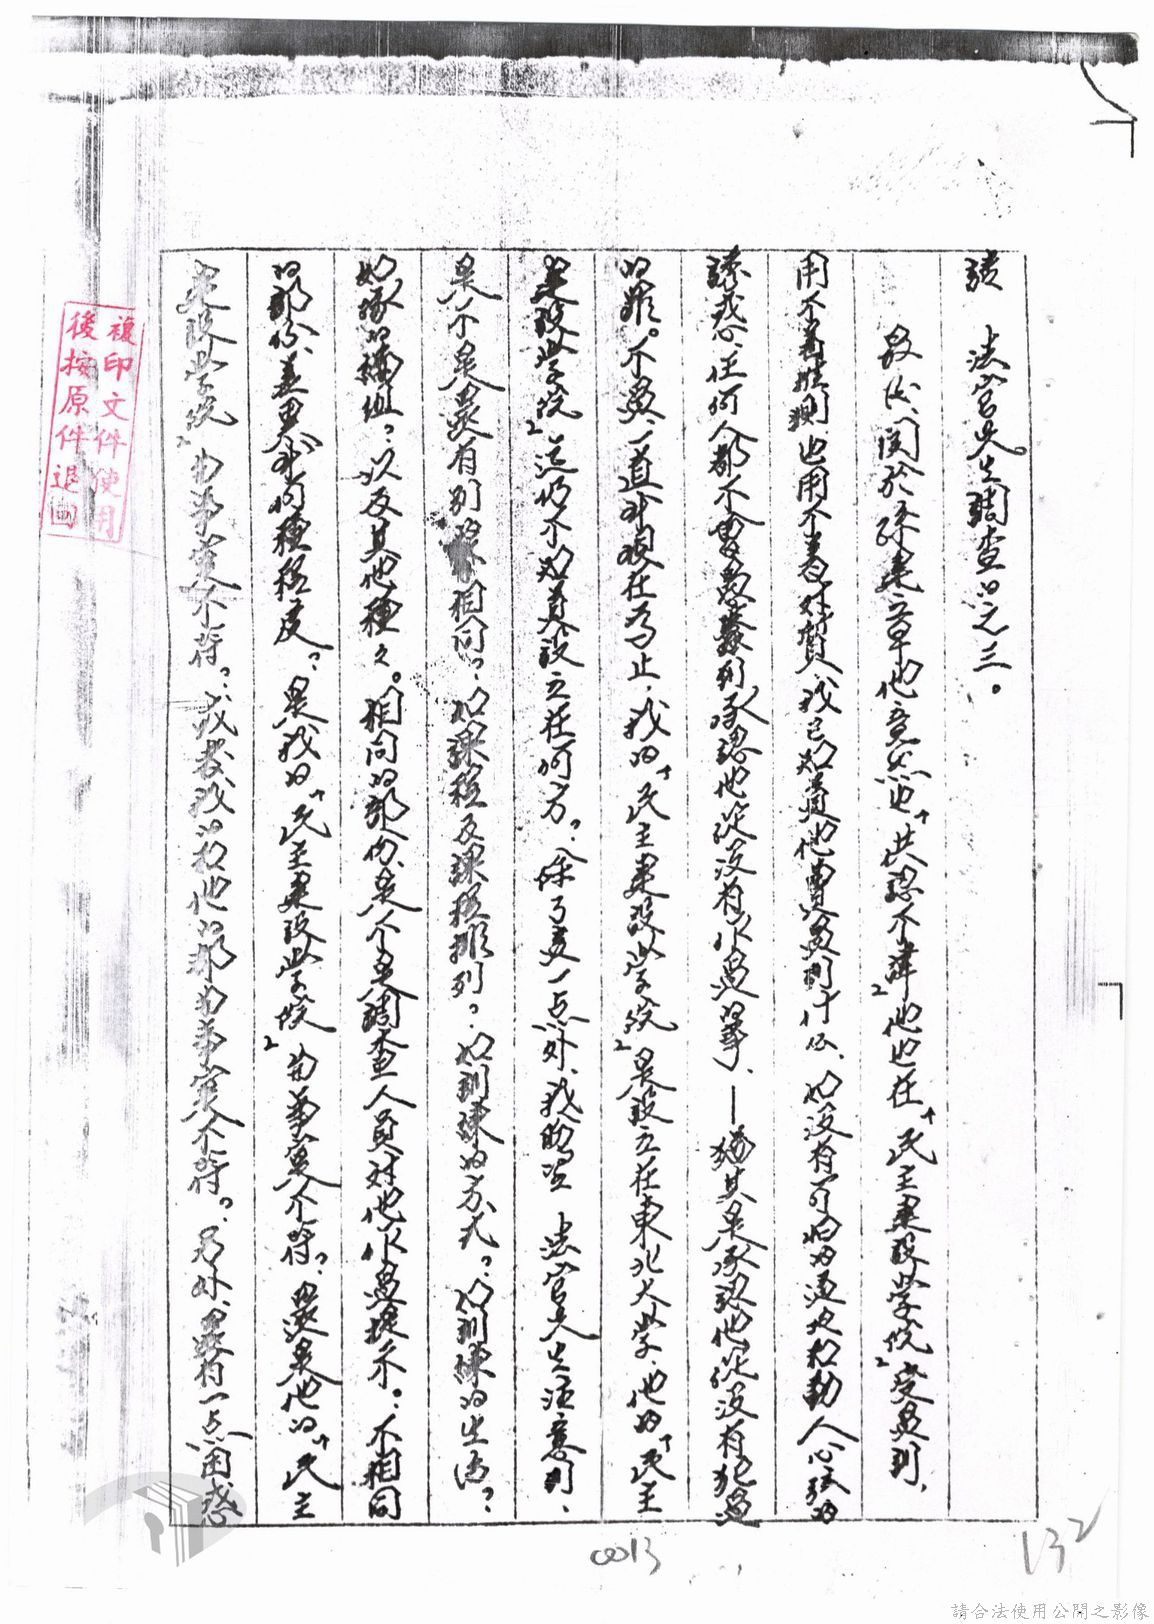 請 法官先生調查的之三。
最後、關於孫建章他竟然也「供認不諱」他也在「民主建設學院」受過訓,
用不着推測、也用不着對質、我已知道他曹過訓什么、如沒有可怕的逼迫和動人心弦的
誘惑、任何人都不會愚蠢到承認他從沒有作過的事、——猶其是承認他從沒有犯過
的罪。不過、一直到現在為止,我的「民主建設學院」是設立在東北大學、他的「民主
建設學院」迄仍不知道設立在何方?、除了這一点外、我盼望 法官先生注意到、
是不是還有別於相同?、如課程及課程排列?、如訓練的方式?、如訓練的生活?、
如隊的編組?、以及其他種々。相同的部份、是不是調查人員對他作過提示?、不相同
的部份、差異到何種程度?、是我的「民主建設學院」與事實不符?、還是他的「民主
建設學院」與事實不符?、或者我的和他的都與事實不符?、另外、還有一点困惑
複印文件使用
後按原件退回
0013
132
請合法使用公開之影像